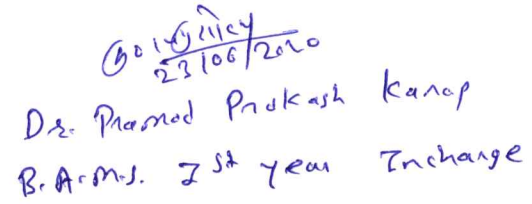 23/06/2020
Dr. Pramod Prakash Kanap
B.A.M.S. Ist year Incharge